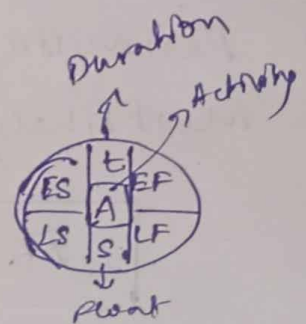 Duration
Activity
t
ES EF
A
LS LF
S
float